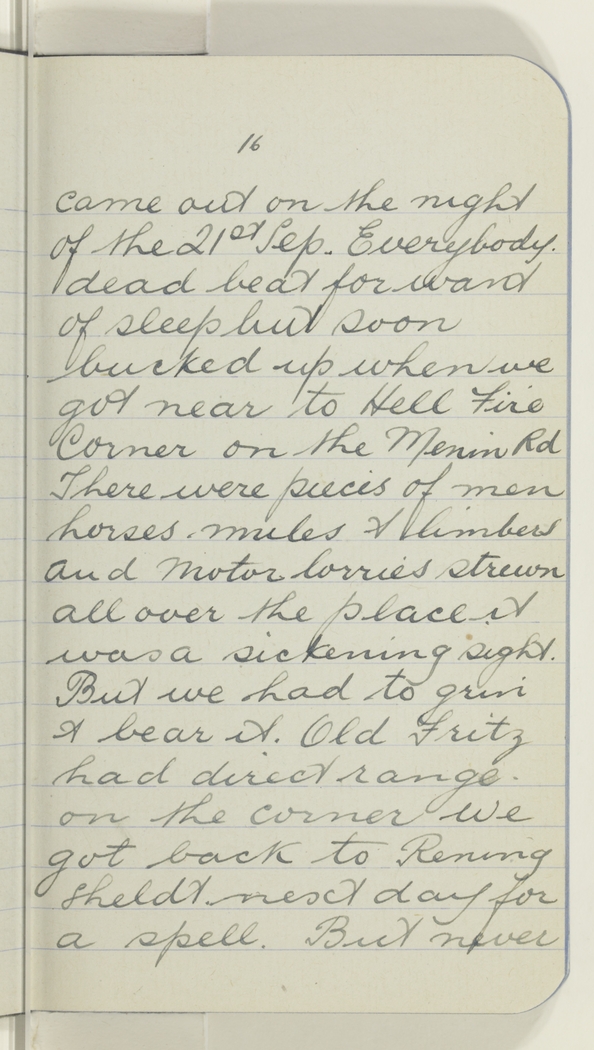 16
came out on the night
of the 21st Sep. Everybody.
dead beat for want
of sleep but soon
bucked up when we
got near to Hell Fire
Corner on the Menin Rd
There were pieces of men
horses. mules & limbers
and Motor lorries strewn
all over the place it
was a sickening sight.
But we had to grin
& bear it. Old Fritz
had direct range.
on the corner we
got back to Rening
sheldt. next day for
a spell. But never